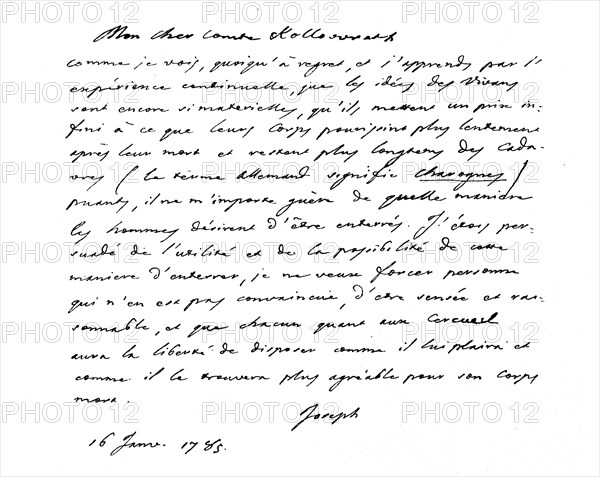 Mon cher Comte Kollowrath
comme je vois, quoiqu'à regret, et j'apprends par l'
expérience continuelle, que les idées des Vivans
sont encore si materielles, qu'ils mettent un prix in-
fini à ce que leurs corps pourissint plus lentement
après leur mort et restent plus longtems des Cada-
vres (le terme allemand signifie charognes)
puants, il ne m'importe guère de quelle manière
les hommes désirent d'être enterrés. J'étois per-
suadé de l'utilité et de la possibilité de cette
maniere d'enterrer, je ne veux forcer personne
qui n'en est pas convaincüe, d'etre sensée et rai-
sonnable, et que chacun quant aux Cercueil
aura la liberté de disposer comme il lui plaira et
comme il le trouvera plus agréable pour son Corps
mort.
Joseph
16 Janv. 1785.
PHOTO 12